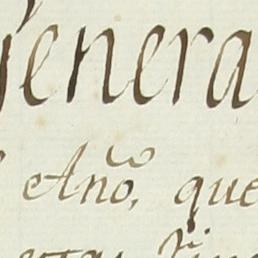 Genera
Año, que